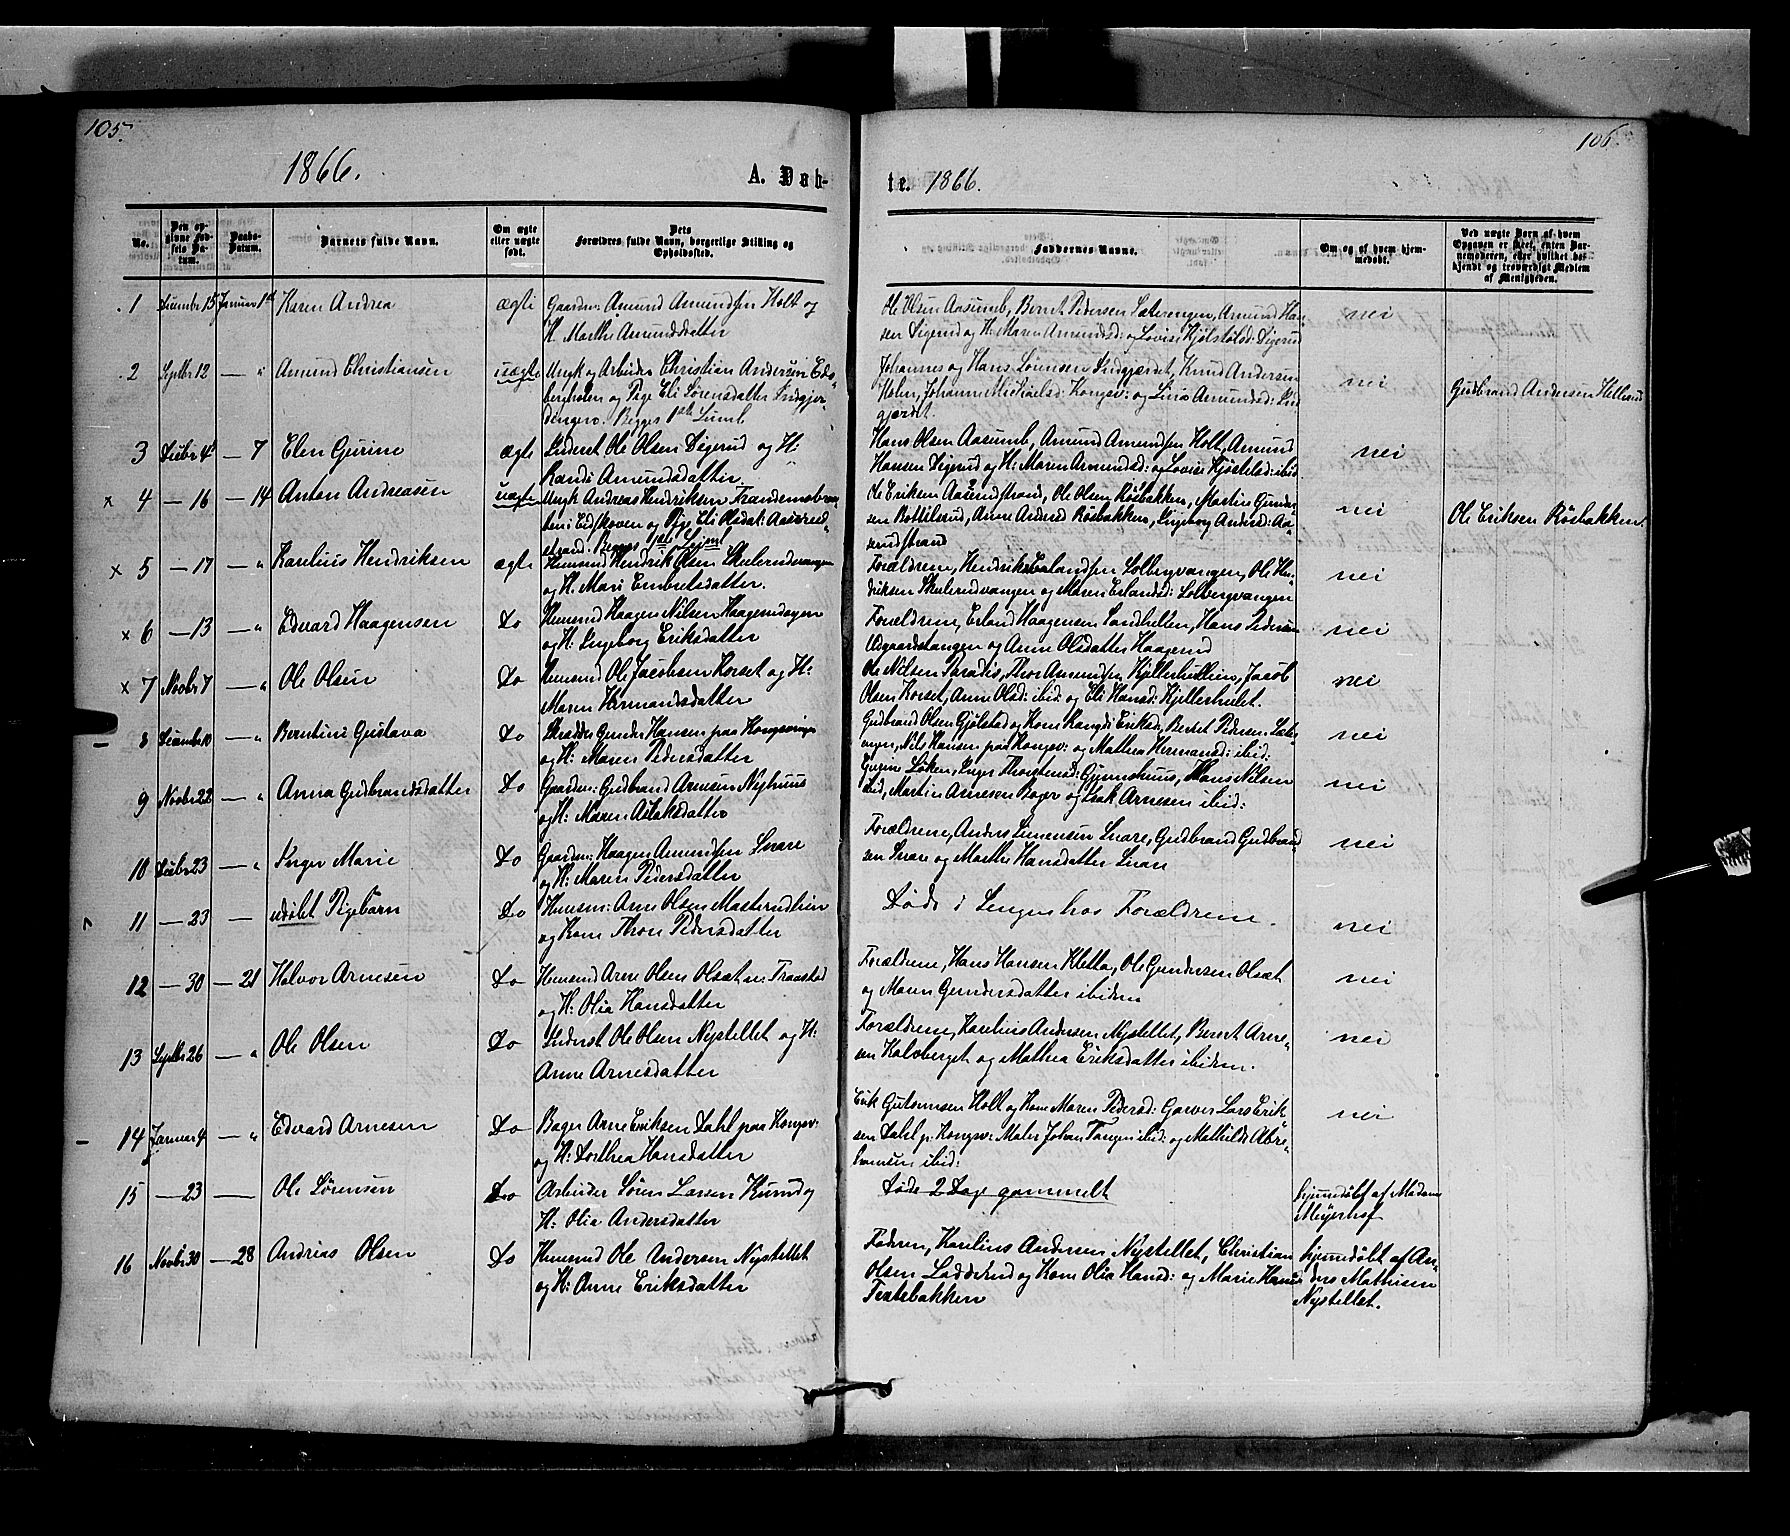 105.
106.
1866.
A. Døb-
te. 1866.
No.
Den opgivne Fødsels Datum.
Daabs-Datum.
Barnets fulde Navn.
Om ægte eller uægte født.
Dets Forældres fulde Navn, borgerlige Stilling og Opholdssted.
Faddernes Navne.
Om og af hvem hjemmedøbt.
Ved uægte Børn af hvem Opgaven er skeet, enten Barnemoderen, eller hvilket bekjendt og troværdigt Medlem af Menigheden.
1 Decembr 15 Januar 1st Karen Andrea ægte Gaardm: Amund Amundsen Holt og
H. Marthe Amundsdatter
Ole Olsen Aasumb, Bernt Pedersen Sæterengen, Amund Han-
sen Digerud og H. Maren Amundsd: og Lovise Kjølstelsd: Digerud
nei
2 Septbr 12 — " Amund Christiansen uægte Ungk og Arbeider Christian Andersen Eds-
bergholen og Pige Eli Sørensdatter
Begges 1ste Leierm
Johannes og Hans Sørensen Knud Andersen
Holm, Johanne Kongsv: og Amundsd:
nei
Gudbrand Andersen Hellerud
3 Decbr 4 — 7 Elen Gurine ægte Inderst Ole Olsen Digerud og H.
Randi Amundsdatter
Hans Olsen Aasumb, Amund Amundsen Holt, Amund
Hansen Digerud og H. Maren Amundsd: og Lovise Kjøstelsd: ibid
nei
x 4 — 16 — 14 Anton Andreasen uægte Ungk Andreas Hendriksen
i Eidskoven og Pige Eli Olsdat: Aaserud-
strand. Begges 1ste Leierm
Ole Eriksen Aaserudstrand, Ole Olsen Rösbakken, Martin Gunder-
sen Bottilsrud, Anne Andersd Rösbakken, Ingeborg Andersd: Aa-
serudstrand
nei
Ole Eriksen Rösbakken.
x 5 — 17 — " Karelius Hendriksen ægte Huusmd Hendrik Olsen Skulerudvangen
og H. Mari Embretsdatter.
Forældrene, Hendrik Erlandsen Solbergvangen, Ole Hen-
driksen Skulerudvangen og Maren Erlandsd: Solbergvangen
nei
x 6 — 13 — " Edvard Haagensen Do Huusmd Haagen Nilsen
og H: Ingeborg Eriksdatter
Forældrene, Erland Haagensen Sandhellen, Hans Pedersen
og Anne Olsdatter Haagerud
nei
x 7 Novbr 7 — " Ole Olsen Do Huusmd Ole Jacobsen Korset og H:
Maren Hermandsdatter
Ole Nilsen Paradis, Thor Amundsen Jacob
Olsen Korset, Anne Olsd: ibid: og Eli Hansd: Kjellerhulet.
nei
8 Decembr 10 — " Berntine Gustava Do Skrædder Gunder Hansen paa Kongsvinger
og H: Maren Pedersdatter
Gudbrand Olsen Gjølstad og Kone Randi Eriksd: Berthe Pedersen Sæter-
engen, Nils Hansen paa Kongsv: og Mathea Hermansd: ibid:
nei
9 Novbr 22 — " Anna Gudbrandsdatter Do Gaardm: Gudbrand Arnesen Nyhuus
og H: Maren Aslaksdatter
Gurine Løken, Inger Thorstensd: Gjemshuus, Hans Nilsen
ibid, Martin Arnesen Bager og Isak Arnesen ibid:
nei
10 Decbr 23 — " Inger Marie Do Gaardm: Haagen Amundsen Snare
og H: Maren Pedersdatter
Forældrene, Anders Simensen Snare, Gudbrand Gudbrand-
sen Snare og Marthe Hansdatter Snare
nei
11 — 23 — udøbt Pigebarn Do Huusm: Arne Olsen Masterudlien
og Kone Thron Pedersdatter
Døde i Sengen hos Forældrene.
nei
12 — 30 — 21 Halvor Arnesen Do Huusmd Arne Olsen Olsæt u. Traastad
og H: Olia Hansdatter
Forældrene, Hans Hansen Kletta, Ole Gundersen Olsæt
og Maren Gundersdatter ibidem
nei
13 Septbr 26 — " Ole Olsen Do Inderst Ole Olsen Nystellet og H:
Anne Arnesdatter
Forældrene, Karelius Andersen Nystellet, Berent Arne-
sen Kalvberget og Mathea Eriksdatter ibidem.
nei
14 Januar 4 — " Edvard Arnesen Do Bager Arne Eriksen Dahl paa Kongsv:
og H: Dorthea Hansdatter
Erik Gutormsen Holt og Kone Maren Pedersd: Garver Lars Erik-
sen Dahl p. Kongsv: Maler Johan Tangen ibid: og Mathilde Abra-
hamsen ibid:
nei
15 — 23 — Ole Sørensen Do Arbeider Søren Larsen Kurud og
H: Olia Andersdatter
Døde 2 Dage gammelt
hjemdøbt af Madame
Meyerhof
16 Novbr 30 — 28 Andreas Olsen Do Huusmd Ole Andersen Nystellet
og H: Anne Eriksdatter
Faderen, Karelius Andersen Nystellet, Christian
Olsen Lodderud og Kone Olia Hansd: og Marie Hansd
hjemdøbt af An-
ders Mathisen
Nystellet.